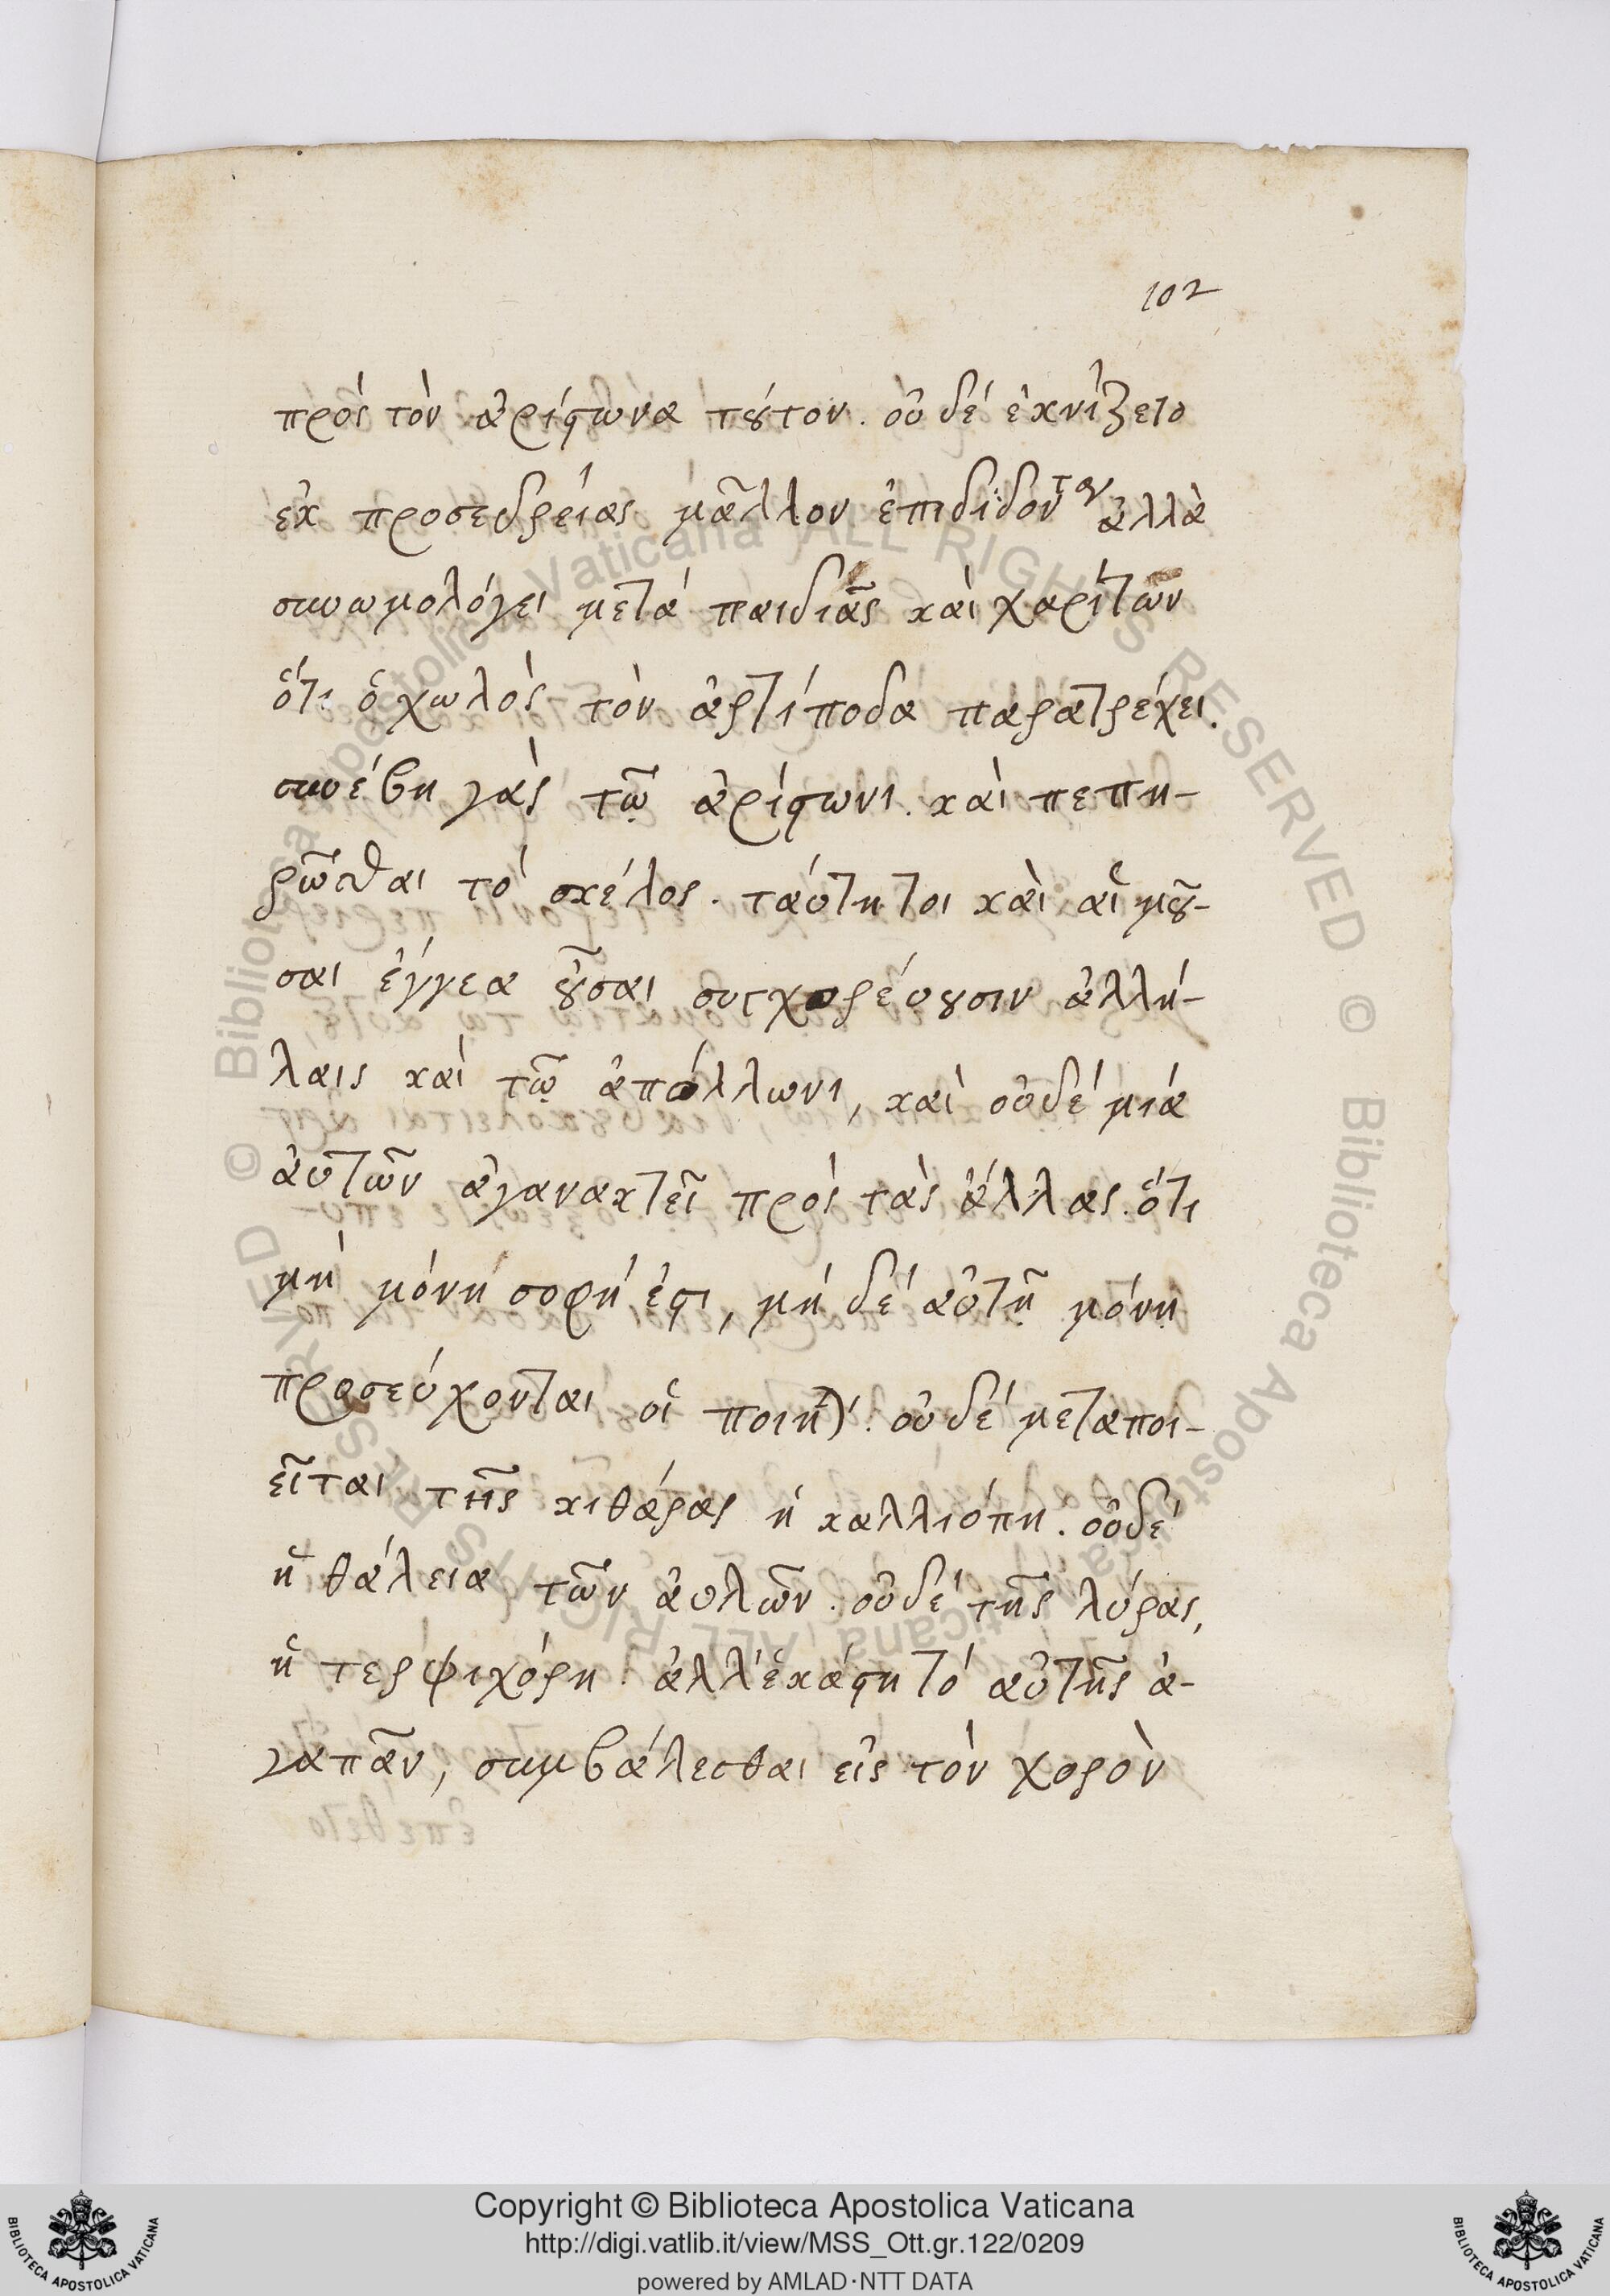 102
πρὸς τὸν ἀρίστωνα τοῦτον. οὐδέ ἐκνίζετο
ἐκ προσεδρείας μᾶλλον ἐπιδιδόντος ἀλλὰ
συνωμολόγει μετὰ παιδιᾶς καὶ χαρίτων
ὅτι ὁ χωλὸς τὸν ἀρτίποδα παρατρέχει.
συνέβη γὰρ τῷ ἀρίστωνι. καὶ πεπη-
ρῶσθαι τὸ σκέλος. ταύτῃ τοι καὶ αἱ μοῦ-
σαι ἐννεα οὖσαι συγχορεύουσιν ἀλλή-
λαις καὶ τῷ ἀπόλλωνι, καὶ οὐδέ μιά
αὐτῶν ἀγανακτεῖ πρὸς τὰς ἄλλας. ὅτι
μὴ μόνη σοφή ἐστι, μή δέ αὐτῇ μόνῃ
προσεύχονται οἱ ποιηταί. οὐδέ μεταποι-
εῖται τῆς κιθάρας ἡ καλλιόπη. οὐδέ
ἡ θάλεια τῶν αὐλῶν. οὐδέ τῆς λύρας,
ἡ τερψιχόρη. ἀλλ' ἑκάστη τό αὐτῆς ἀ-
γαπᾶν, συμβάλεσθαι εἰς τὸν χορὸν
Copyright © Biblioteca Apostolica Vaticana
http://digi.vatlib.it/view/MSS_Ott.gr.122/0209
powered by AMLAD·NTT DATA
BIBLIOTECA APOSTOLICA VATICANA
BIBLIOTECA APOSTOLICA VATICANA
© Biblioteca Apostolica Vaticana ALL RIGHTS RESERVED
© Biblioteca Apostolica Vaticana ALL RIGHTS RESERVED